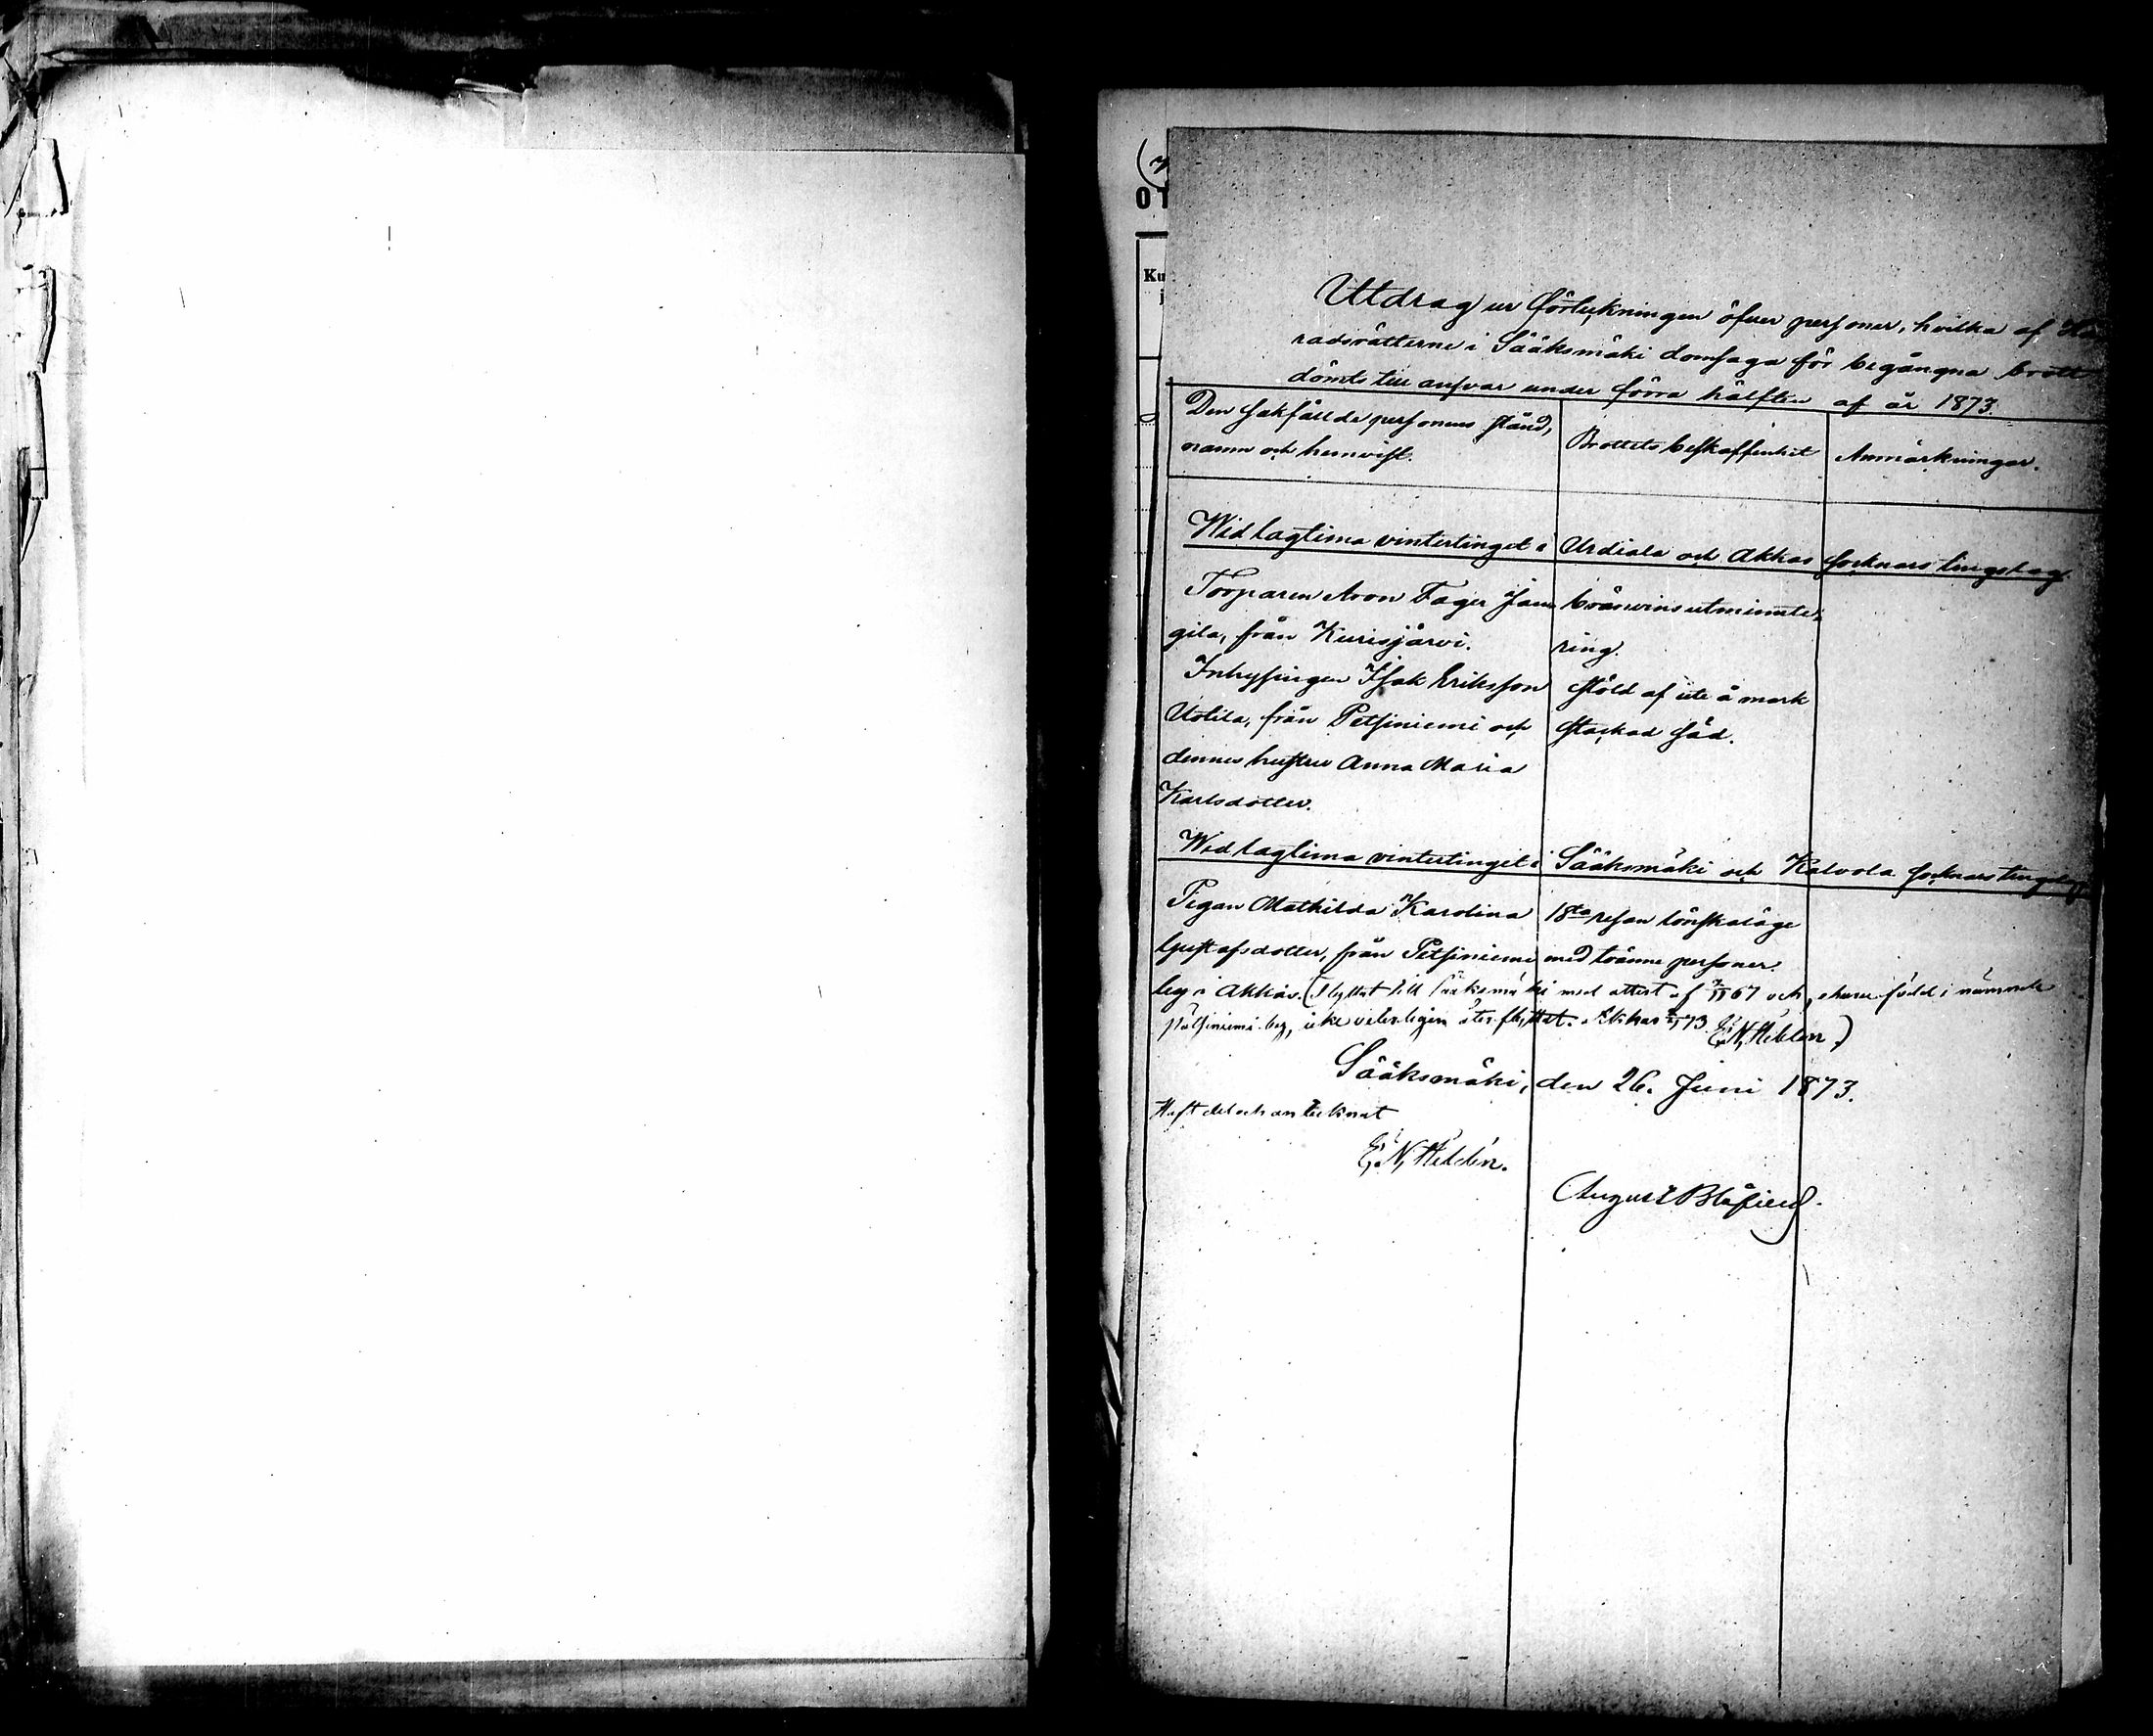 Utdrag ur förteckningen öfver personer, hvilka af Hä
radsrätterne i Sääksmäki domsaga för begångna brott
dömts till ansvar under förra hälften af år 1873.
Den sakfällde personens stånd,
namn och hemvist.
Brottets beskaffenhet
Anmärkningar.
Wid lagtima vintertinget i Urdiala och Akkas socknars tingslag.
Torparen Aron Fager Jam
gila, från Kurisjärvi.
bränvinsutminute-
ring.
Inhysingen Isak Eriksson
Uotila, från Petsiniemi och
dennes hustru Anna Maria
Karlsdotter.
stöld af ute å mark
stackad säd.
Wid lagtima vintertinget i Sääksmäki och Kalvola socknars tingslag.
Pigan Mathilda Karolina
Gustafsdotter, från Petsiniemi
by i Akkas.
1sta resan lönskaläge
med tvänne personer.
(flyttat till Sääksmäki med attest af 7/11 67 och, ehuru född i nämnde
Pätsiniemi by, icke veterligen återflyttat. Akkas 73. E. N. Heldén.)
Sääksmäki, den 26. Juni 1873.
Haft del och antecknat
E. N. Heldén.
August Blåfield.
Ku